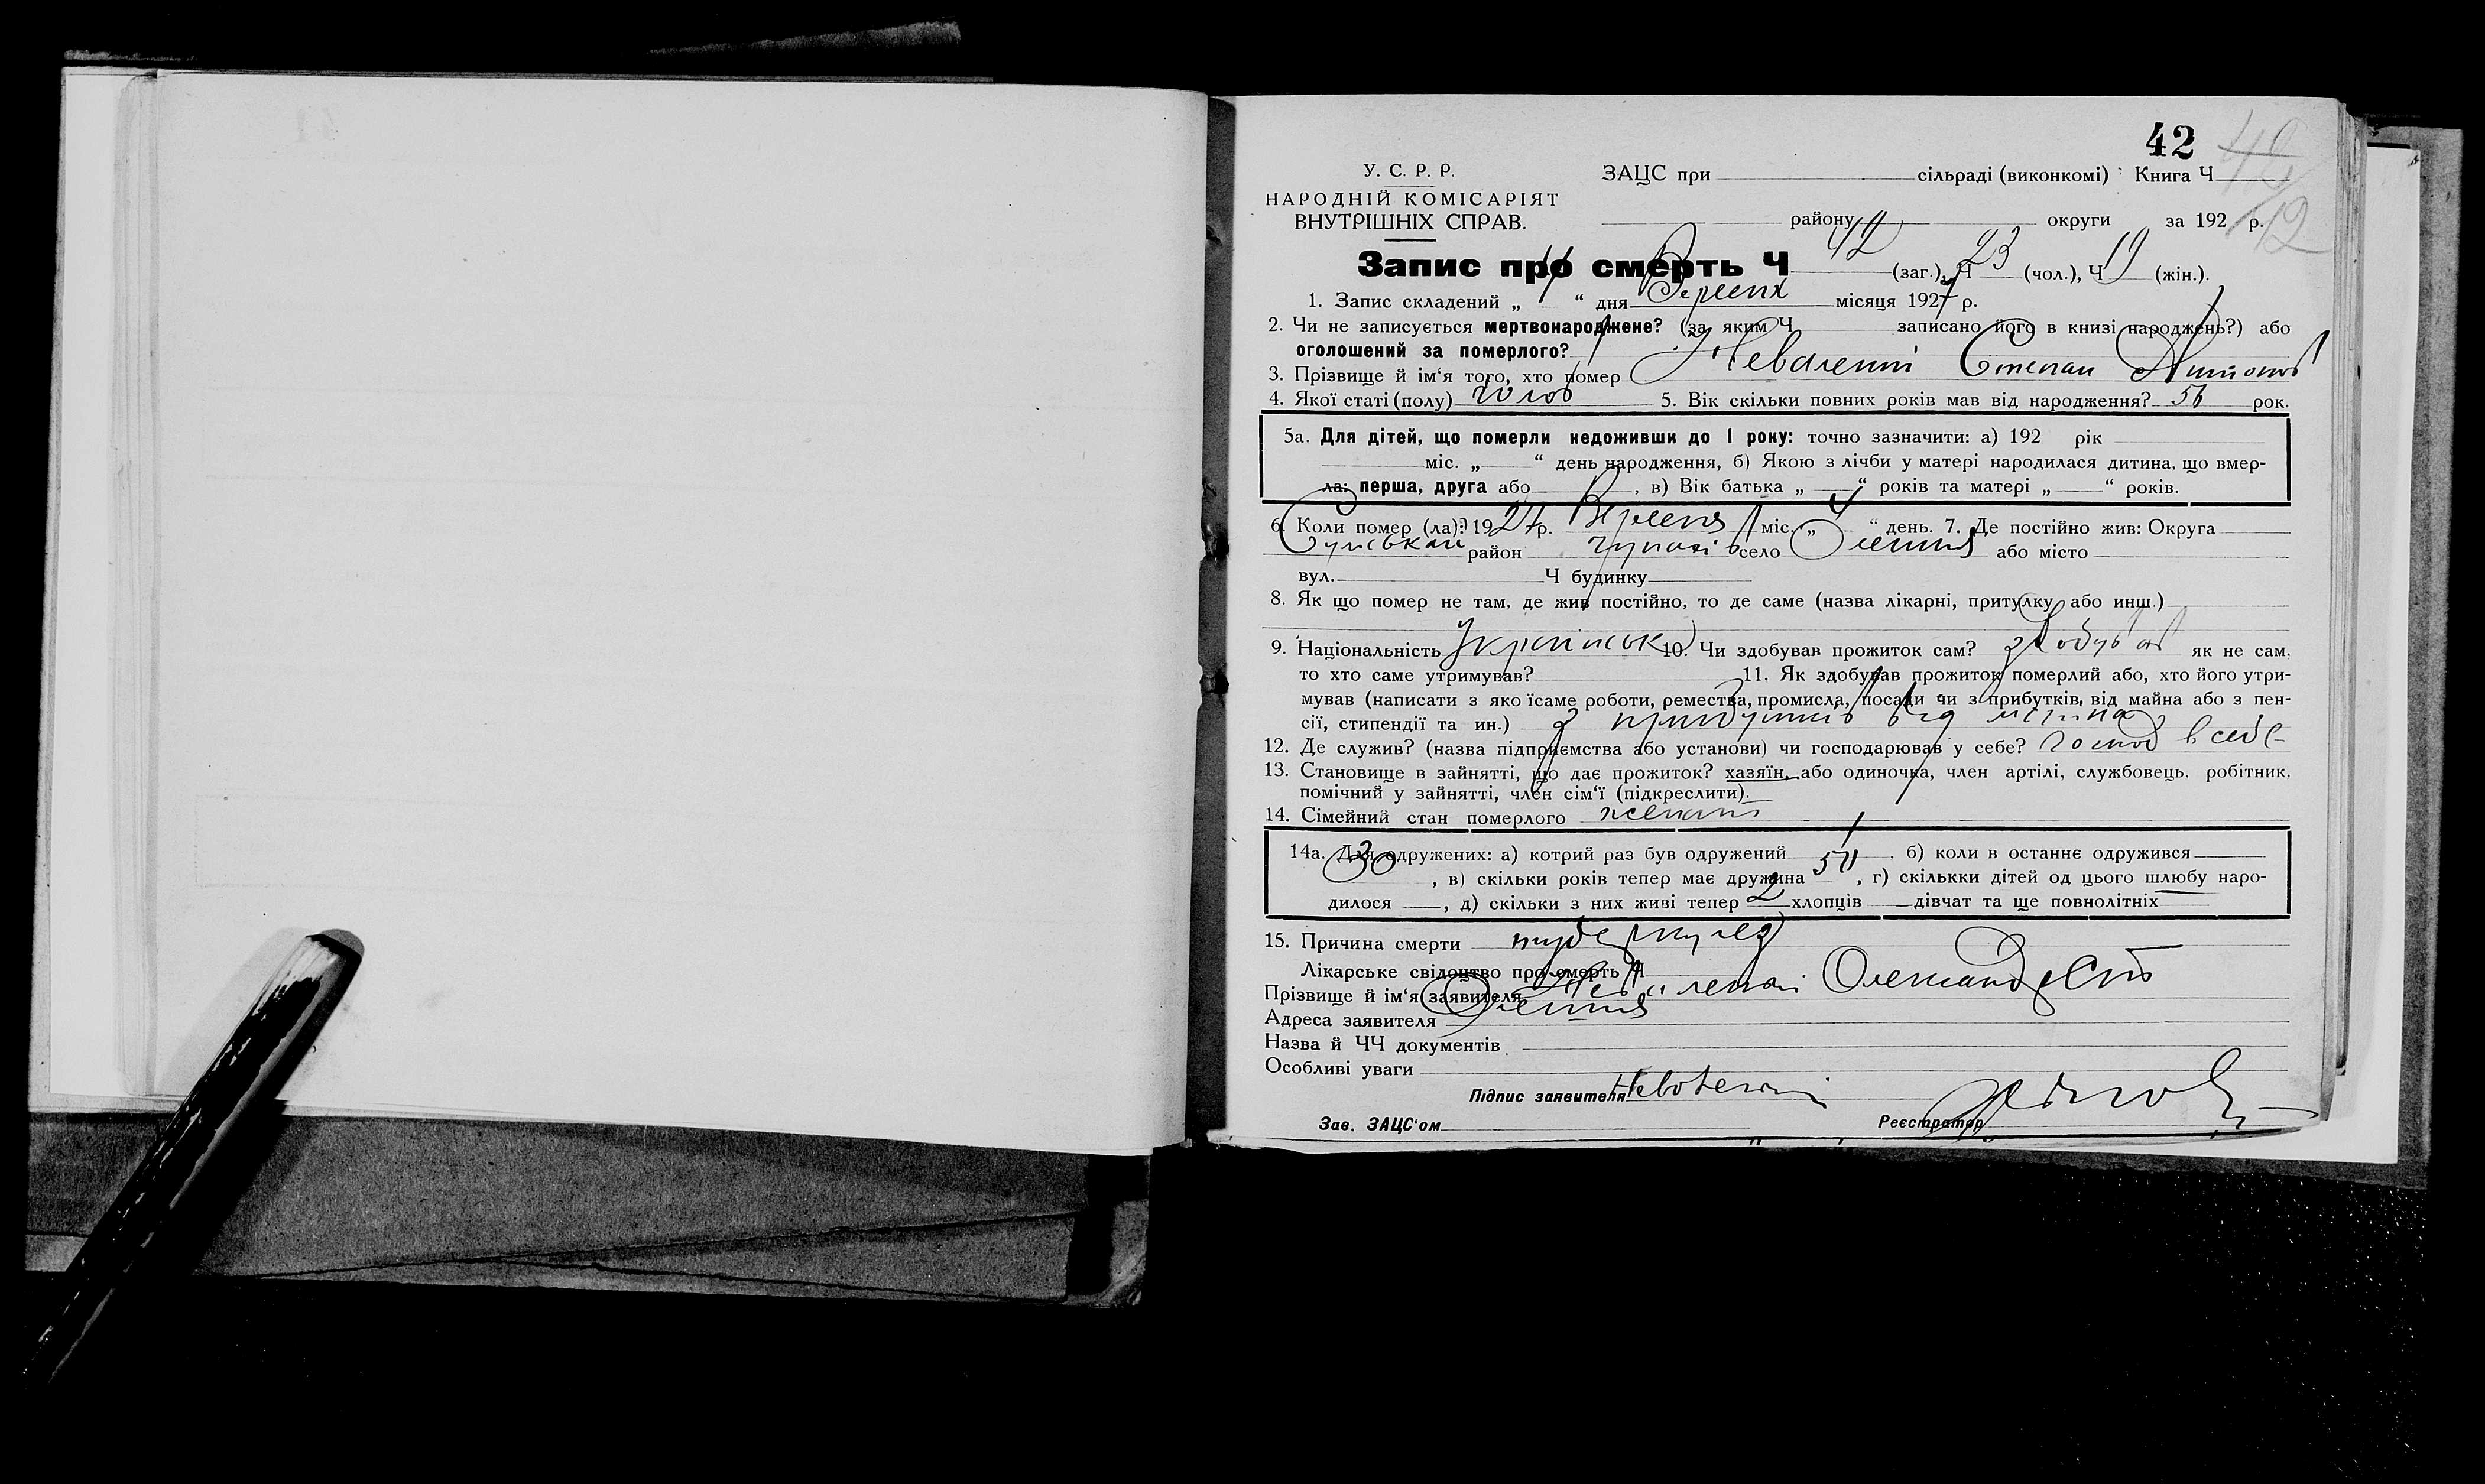 42
У. С. Р. Р. ЗАЦС при сільраді (виконкомі) Книга Ч
НАРОДНІЙ КОМІСАРІЯТ
ВНУТРІШНІХ СПРАВ. району округи за 192 р.
Запис про смерть Ч 42 (заг.), Ч 23 (чол.), Ч 19 (жін.).
1. Запис складений „ “ дня Вересня місяця 1927 р.
2. Чи не записується мертвонароджене? (за яким Ч записано його в книзі народжень?) або
оголошений за померлого?
3. Прізвище й ім‘я того, хто помер Степан
4. Якої статі (полу) чолов 5. Вік скільки повних років мав від народження? 56 рок.
5а. Для дітей, що померли недоживши до 1 року: точно зазначити: а) 192 рік
міс. „ “ день народження, б) Якою з лічби у матері народилася дитина, що вмер-
ла: перша, друга або , в) Вік батька „ “ років та матері „ “ років.
6. Коли помер (ла)? 1927 р. Вересня міс. „ 4 “ день. 7. Де постійно жив: Округа
Сумськай район село або місто
вул. Ч будинку
8. Як що помер не там, де жив постійно, то де саме (назва лікарні, притулку або инш.)
9. Національність 10. Чи здобував прожиток сам? здобував як не сам,
то хто саме утримував? 11. Як здобував прожиток померлий або, хто його утри-
мував (написати з яко їсаме роботи, ремества, промисла, посади чи з прибутків, від майна або з пен-
сії, стипендії та ин.) з прибутків від майна
12. Де служив? (назва підприємства або установи) чи господарював у себе? господ в себе
13. Становище в зайнятті, що дає прожиток? хазяїн, або одиночка, член артілі, службовець, робітник,
помічний у зайнятті, член сім‘ї (підкреслити).
14. Сімейний стан померлого женат
14а. Для одружених: а) котрий раз був одружений , б) коли в останнє одружився
30 , в) скільки років тепер має дружина , г) скількки дітей од цього шлюбу наро-
дилося , д) скільки з них живі тепер 2 хлопців дівчат та ще повнолітніх
15. Причина смерти туберкулез
Лікарське свідоцтво про смерть Ч
Прізвище й ім‘я заявителя Олександр
Адреса заявителя
Назва й ЧЧ документів
Особливі уваги
Підпис заявителя
Зав. ЗАЦС‘ом Реєстратор